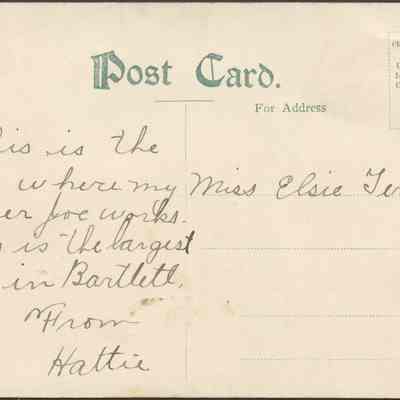 Post Card.
For Address
is is the
where my
er Joe works.
s is the largest
in Bartlett.
From
Hattie
Miss Elsie